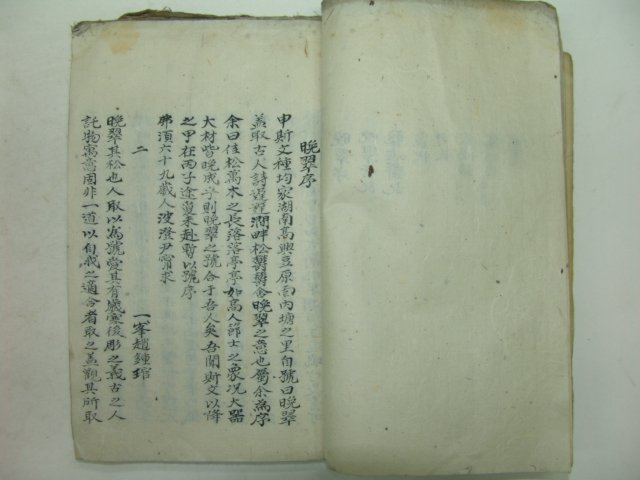 晩翠序
申斯文種均家湖南高興豆原面內塘之里自號曰晩翠
盖取古人詩遲遲澗畔松鬱鬱含晩翠之意也屬余為序
余曰佳松萬木之長落落亭亭如高人節士之象況大器
大材皆晩成乎則晩翠之號合于吾人矣吾聞斯文以降
之甲在丙子途夐来赴暫以號序
弗須六十九歲人波澄尹甯求
二
一寧趙鍾琯
晩翠其松也人取以為號愛其有歲寒後彫之義古之人
託物寓意固非一道以自我之適合者取之盖觀其所取